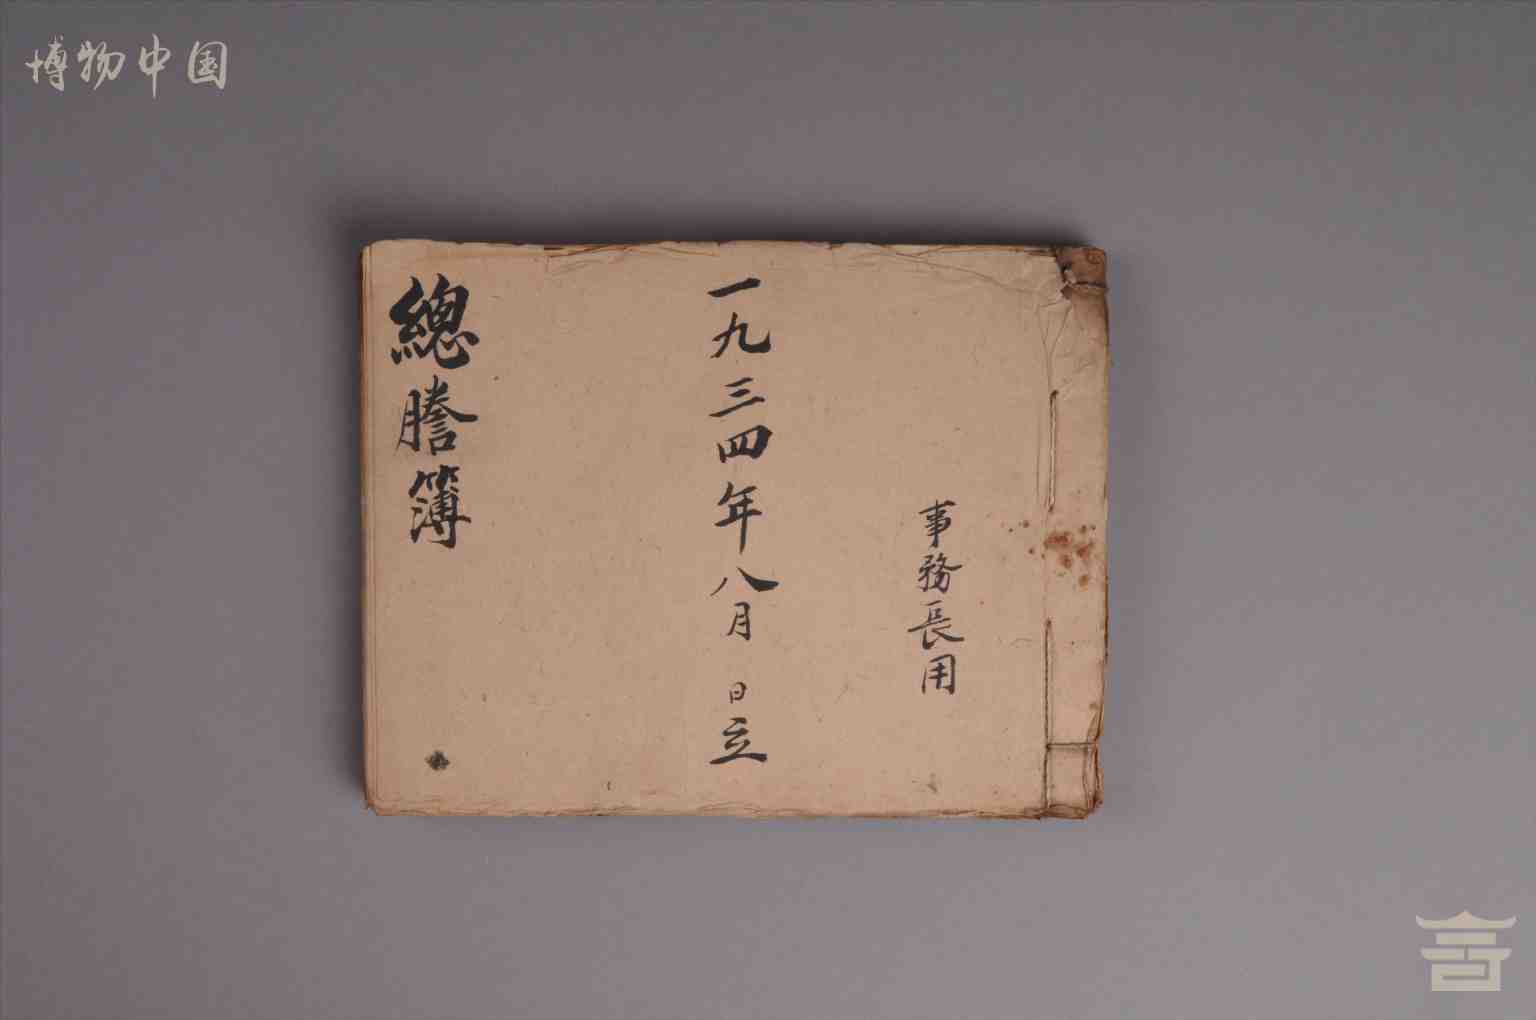 博物中国
事務長用
一九三四年八月 日立
總謄簿